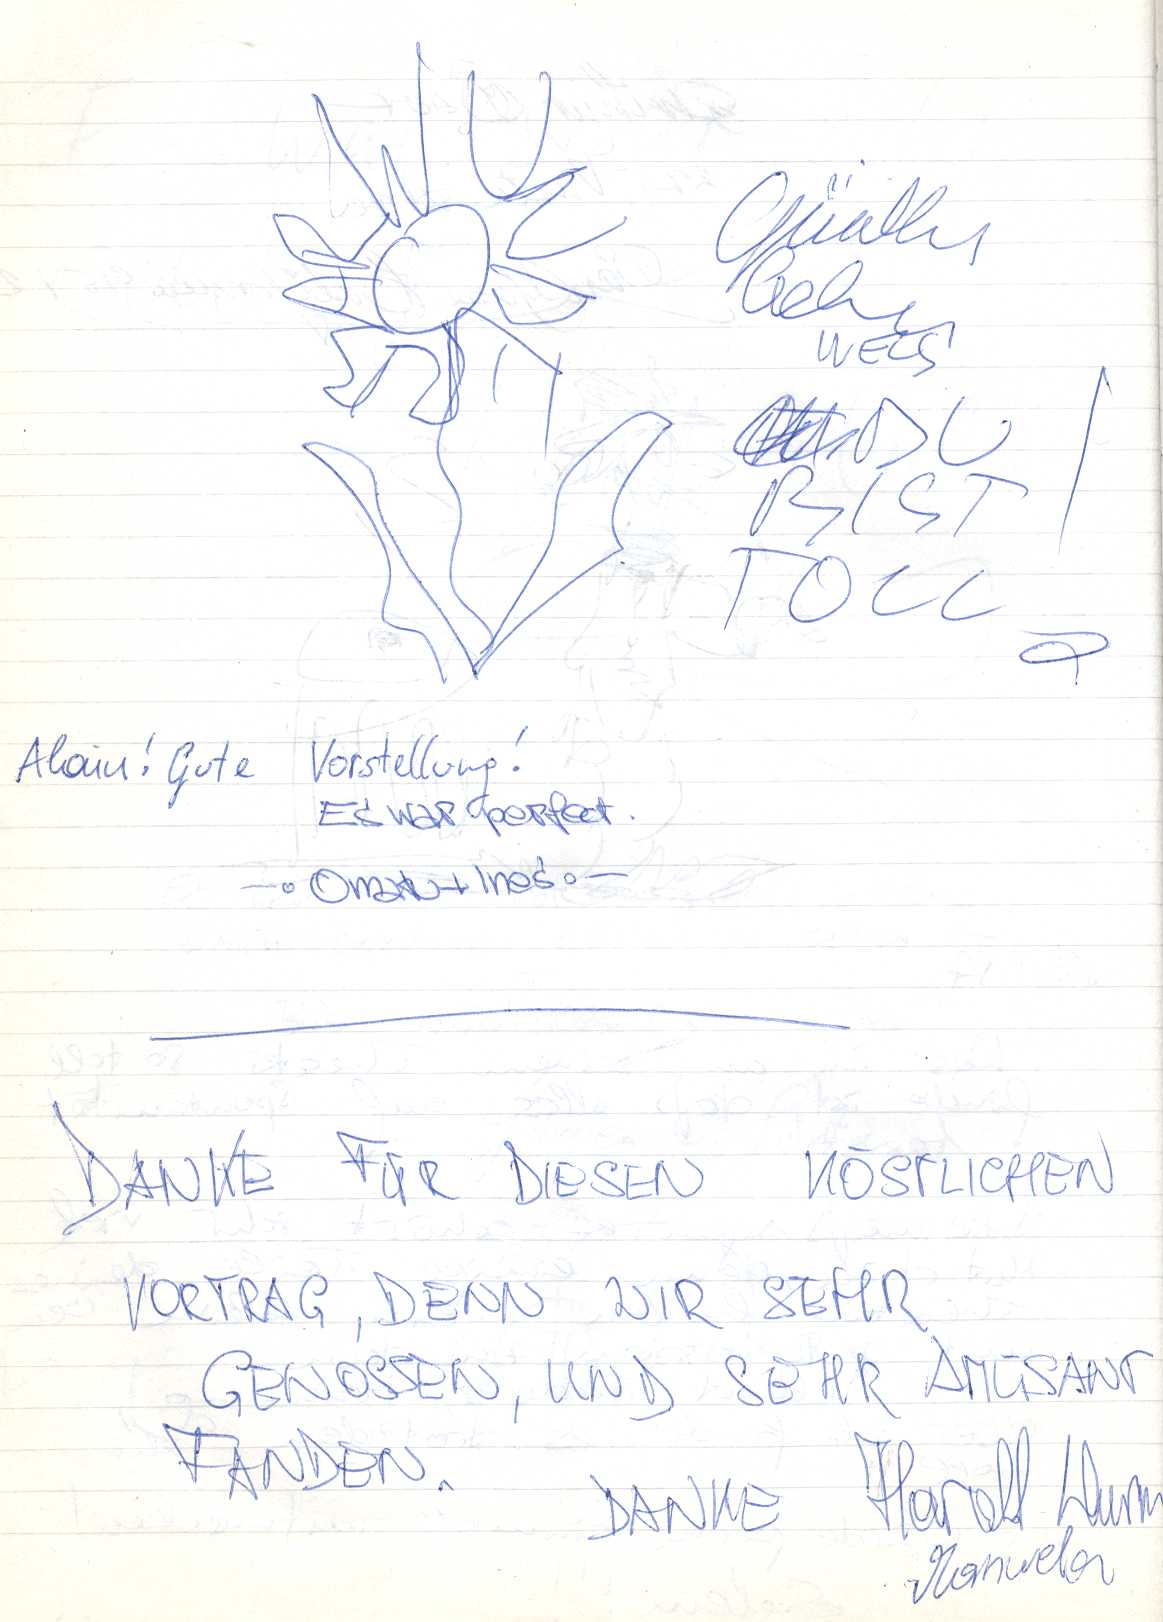 Günther
WELS
DU
BIST
TOLL !
Alain! Gute Vorstellung!
Es war perfect.
+ Ines
DANKE FÜR DIESEN KÖSTLICHEN
VORTRAG, DENN WIR SEHR
GENOSSEN, UND SEHR AMÜSANT
FANDEN.
DANKE Harald Wurm
Manuela